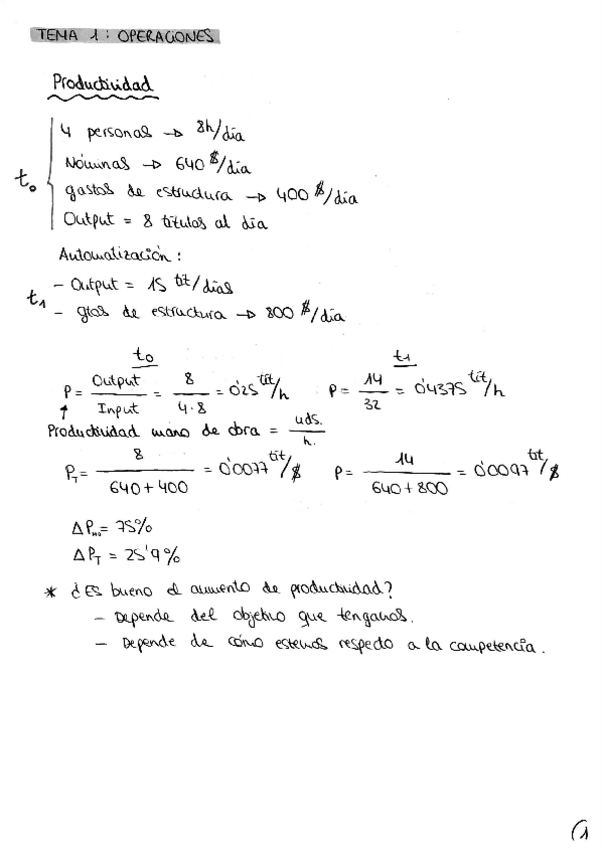 TEMA 1: OPERACIONES
Productividad
t₀
4 personas → 8h/día
Nóminas → 640 $/día
gastos de estructura → 400 $/día
Output = 8 títulos al día
Automatización:
t₁
- Output = 15 tít/días
- gtos de estructura → 800 $/día
t₀ t₁
P = Output/Input = 8/4·8 = 0'25 tít/h P = 14/32 = 0'4375 tít/h
Productividad mano de obra = uds./h.
P_T = 8/640+400 = 0'0077 tít/$ P = 14/640+800 = 0'0097 tít/$
ΔP_MO = 75%
ΔP_T = 25'9%
* ¿Es bueno el aumento de productividad?
- Depende del objetivo que tengamos.
- Depende de cómo estemos respecto a la competencia.
1